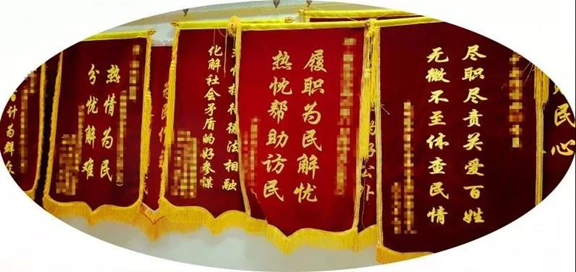 民心
尽职尽责关爱百姓
无微不至体查民情
履职为民解忧
热忱帮助访民
德法相融
化解社会矛盾的好参谋
热情为民
分忧解难
为群